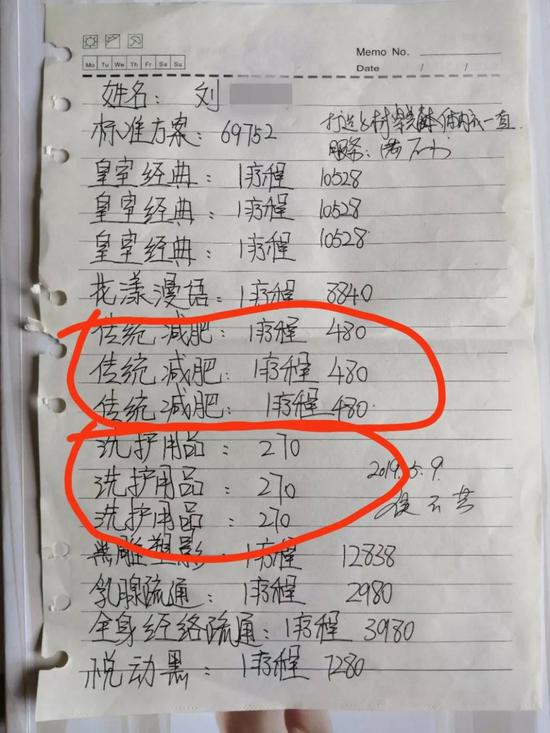 Memo No.
Mo Tu We Th Fr Sa Su
Date / /
姓名: 刘
标准方案: 69752
打造
服务:
皇室经典: 1疗程 10528
皇室经典: 1疗程 10528
皇室经典: 1疗程 10528
花漾漫语: 1疗程 8840
传统减肥: 1疗程 480
传统减肥: 1疗程 480
传统减肥: 1疗程 480
洗护用品: 270
洗护用品: 270
洗护用品: 270
2019.5.9
黑雕塑影: 1疗程 12838
乳腺疏通: 1疗程 2980
全身经络疏通: 1疗程 3980
悦动黑: 1疗程 1280